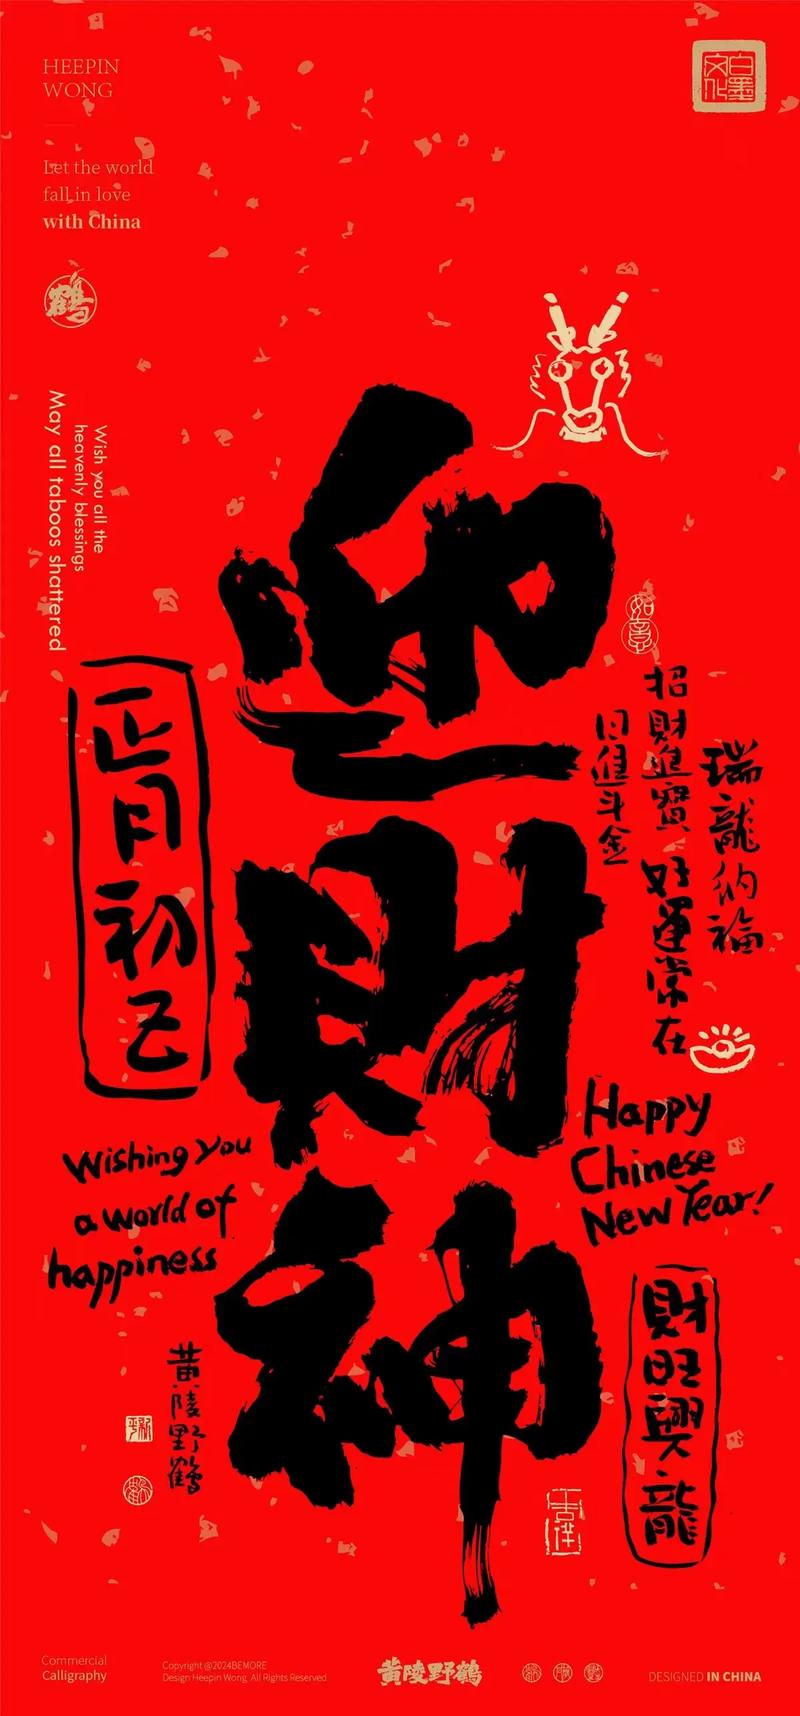 HEEPIN
WONG
Let the world
fall in love
with China
白墨
文化
鶴
Wish you all the
heavenly blessings
May all taboos shattered
迎財神
如意
瑞龍納福
招財進寶 好運常在
日進斗金
正月初五
Happy
Chinese
New Year!
Wishing you
a world of
happiness
財旺興龍
黄陵野鶴
Commercial
Calligraphy
Copyright @2024BEMORE
Design Heepin Wong, All Rights Reserved
黄陵野鶴
DESIGNED IN CHINA